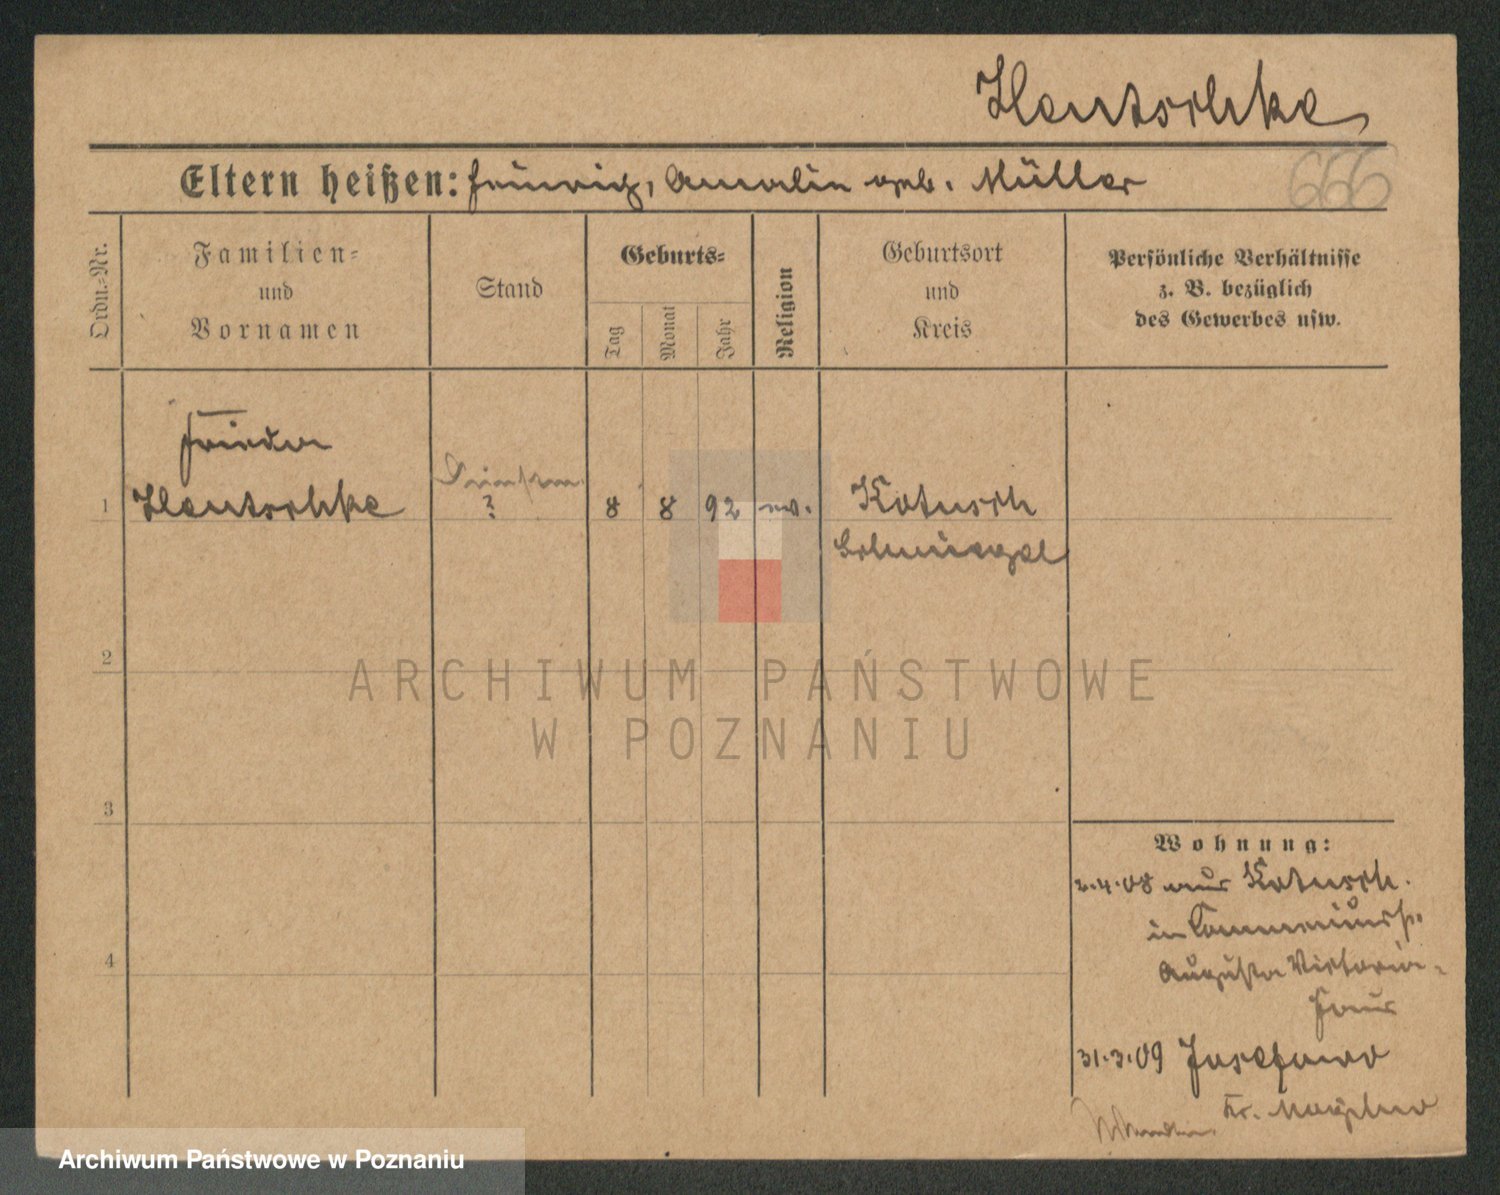 Hentschke
666
Eltern heißen: Heinrich, Amalie geb. Müller
Ordn.-Nr.
Familien-
und
Vornamen
Stand
Geburts-
Tag
Monat
Jahr
Religion
Geburtsort
und
Kreis
Persönliche Verhältnisse
z. B. bezüglich
des Gewerbes usw.
Frieda
Hentschke
?
1
8 8 92 ev.
Kotusch
Schmiegel
2
3
4
Wohnung:
2.4.08 aus Kotusch.
in
Augusta Victoria-
Haus
31.3.09 Josefowo
Kr.
ARCHIWUM PAŃSTWOWE
W POZNANIU
Archiwum Państwowe w Poznaniu